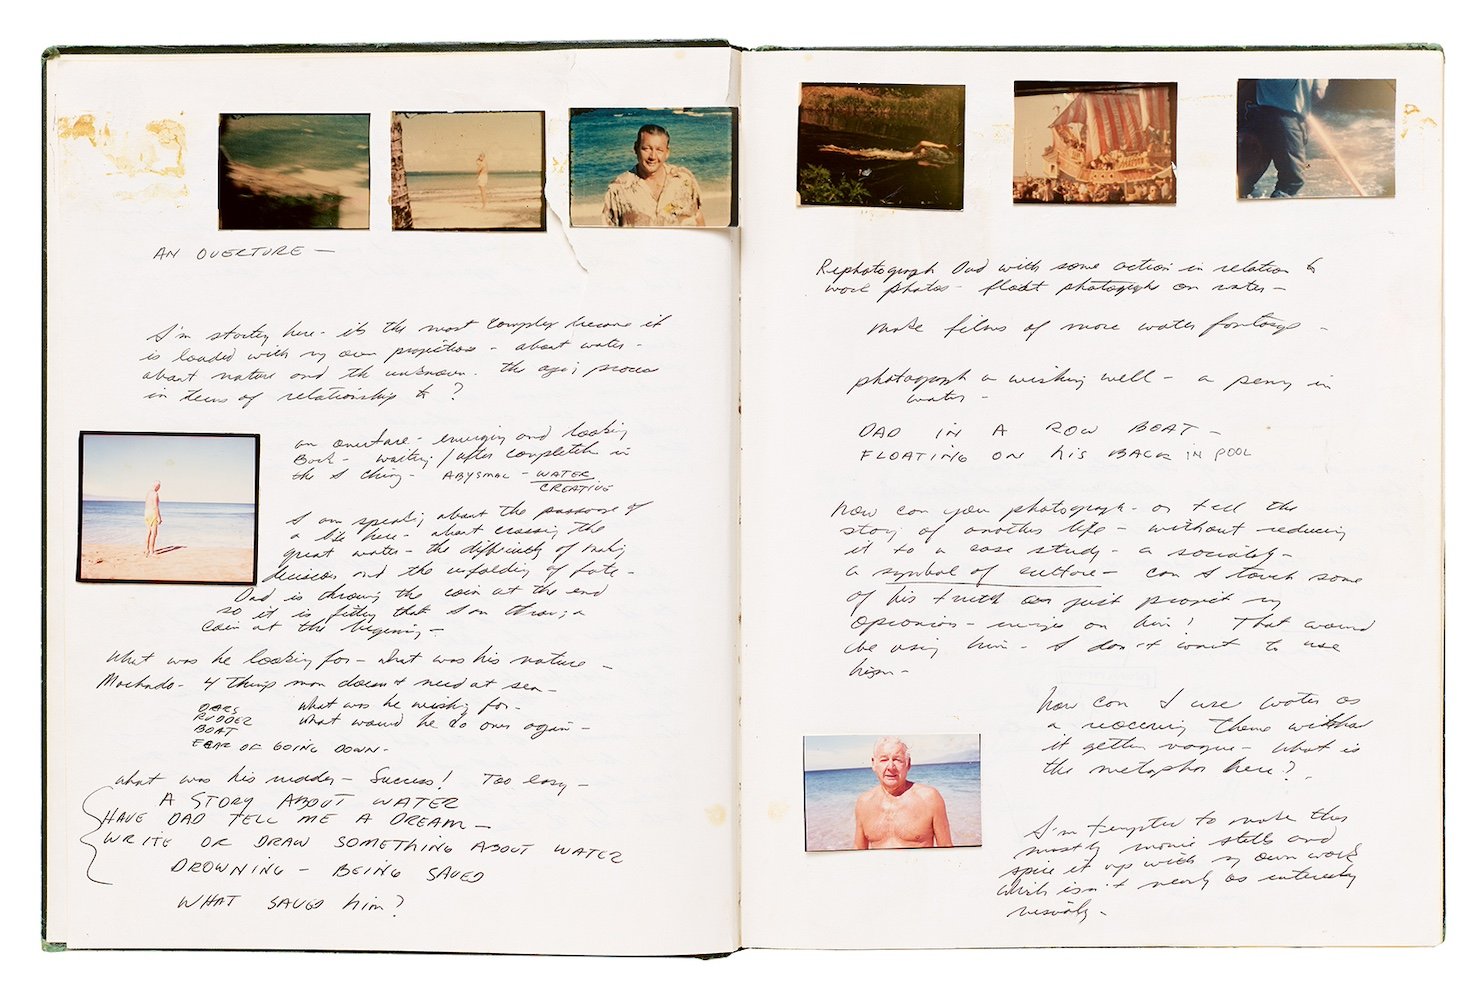 AN OVERTURE —
I'm starting here - it's the most complex because it
is loaded with my own projections - about water -
about nature and the unknown. The aging process
in terms of relationship to ?
an overture - emerging and looking
Back - waiting / after completion in
the I Ching - ABYSMAL - WATER
CREATIVE
I am speaking about the passage of
a life here - about crossing the
great water - the difficulty of making
decisions and the unfolding of fate -
Dad is throwing the coin at the end
so it is fitting that I am throwing a
coin at the beginning -
What was he looking for - what was his nature -
Machado - 4 things man doesn't need at sea -
OARS what was he wishing for -
RUDDER what would he do over again -
BOAT
FEAR OF GOING DOWN -
what was his rudder - Success! Too easy -
A STORY ABOUT WATER
HAVE DAD TELL ME A DREAM —
WRITE OR DRAW SOMETHING ABOUT WATER
DROWNING - BEING SAVED
WHAT SAVED him?
Rephotograph Dad with some action in relation to
work photos - float photographs on water -
make films of more water footage -
photograph a wishing well - a penny in
water -
DAD IN A ROW BOAT -
FLOATING ON his BACK IN POOL
How can you photograph - or tell the
story of another life - without reducing
it to a case study - a sociology -
a symbol of culture - can I touch some
of his truth or just project my
opinions - images on him! That would
be using him - I don't want to use
him -
how can I use water as
a reoccuring theme without
it getting vague - what is
the metaphor here?
I'm tempted to make this
mostly movie stills and
spice it up with my own work
which isn't nearly as interesting
visually -